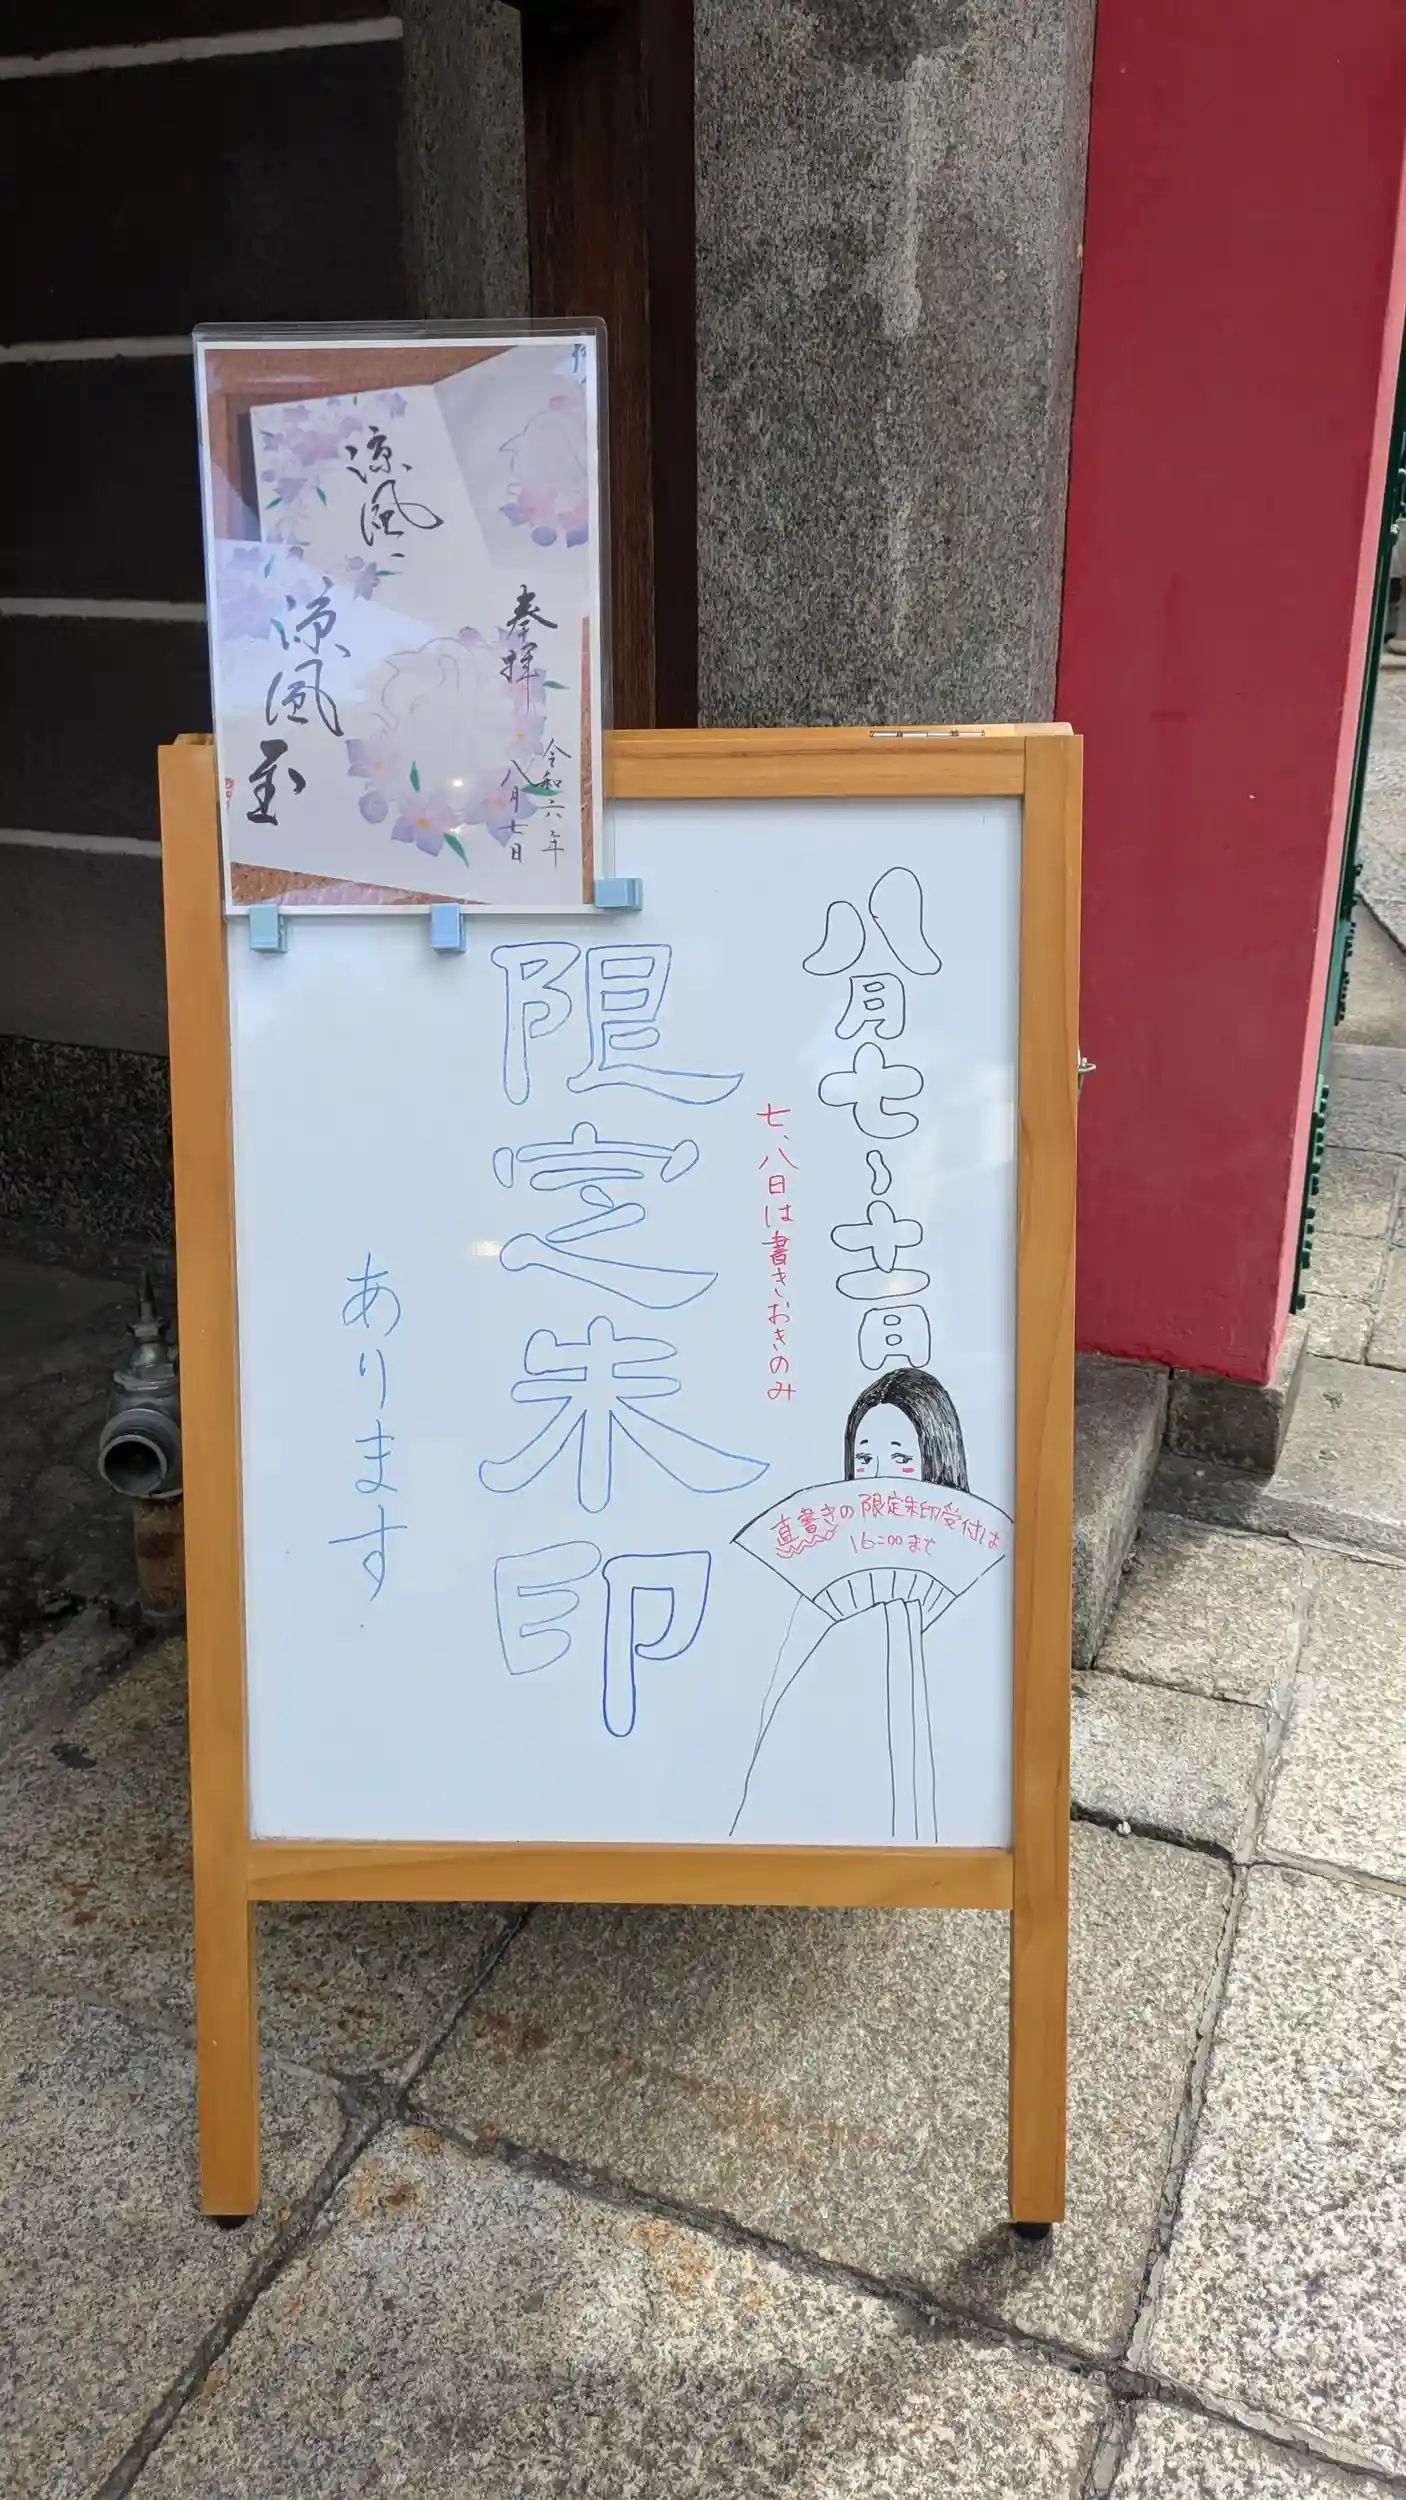 八月七〜十一日
七、八日は書きおきのみ
直書きの限定朱印受付は
16:00まで
限定朱印
あります
奉拝
令和六年
八月七日
涼風
涼風至